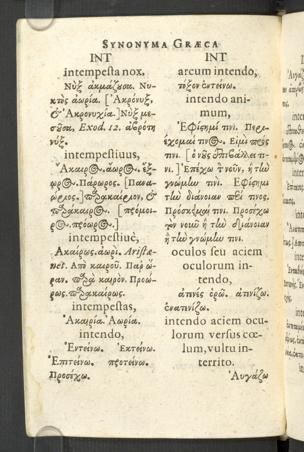 SYNONYMA GRÆCA
INT
intempesta nox,
Νὺξ ἀκμάζουσα. Νυ-
κτὸς ἀωρία. [Ἀκρόνυξ,
& Ἀκρονυχία.] Νὺξ με-
σοῦσα, Exod. 12. ἀβρότη
νύξ.
intempestiuus,
Ἄκαιρος. ἄωρος. ἔξ-
ωρος. Πάρωρος. [Πανα-
ώριος.] παρακαίριον, &
παράκαιρος.
intempestiuè,
Ἀκαίρως. ἀωρί. Aristæ-
net. Ἀπὸ καιροῦ. Παρ᾽ ὥ-
ραν. παρὰ καιρόν. Προώ-
ρως. παρακαίρως.
intempestas,
Ἀκαιρία. Ἀωρία.
intendo,
Ἐντείνω. Ἐκτείνω.
Ἐπιτείνω. προτείνω.
Προσέχω.
INT
arcum intendo,
τόξον ἐντείνω.
intendo ani-
mum,
Ἐφίσημί τινι.
γνώμην τινι. Ἐφίσημι
τὴν διάνοιαν πρός τινος.
Πρόσκειμαί τινι. Προσέχω
τὸν νοῦν ἢ τὴν διάνοιαν
ἢ τὴν γνώμην τινι.
oculos seu aciem
oculorum in-
tendo,
ἀτενὲς ὁρῶ. ἀτενίζω.
ἐνατενίζω.
intendo aciem ocu-
lorum versus cœ-
lum, vultu in-
territo.
Αὐγάζω